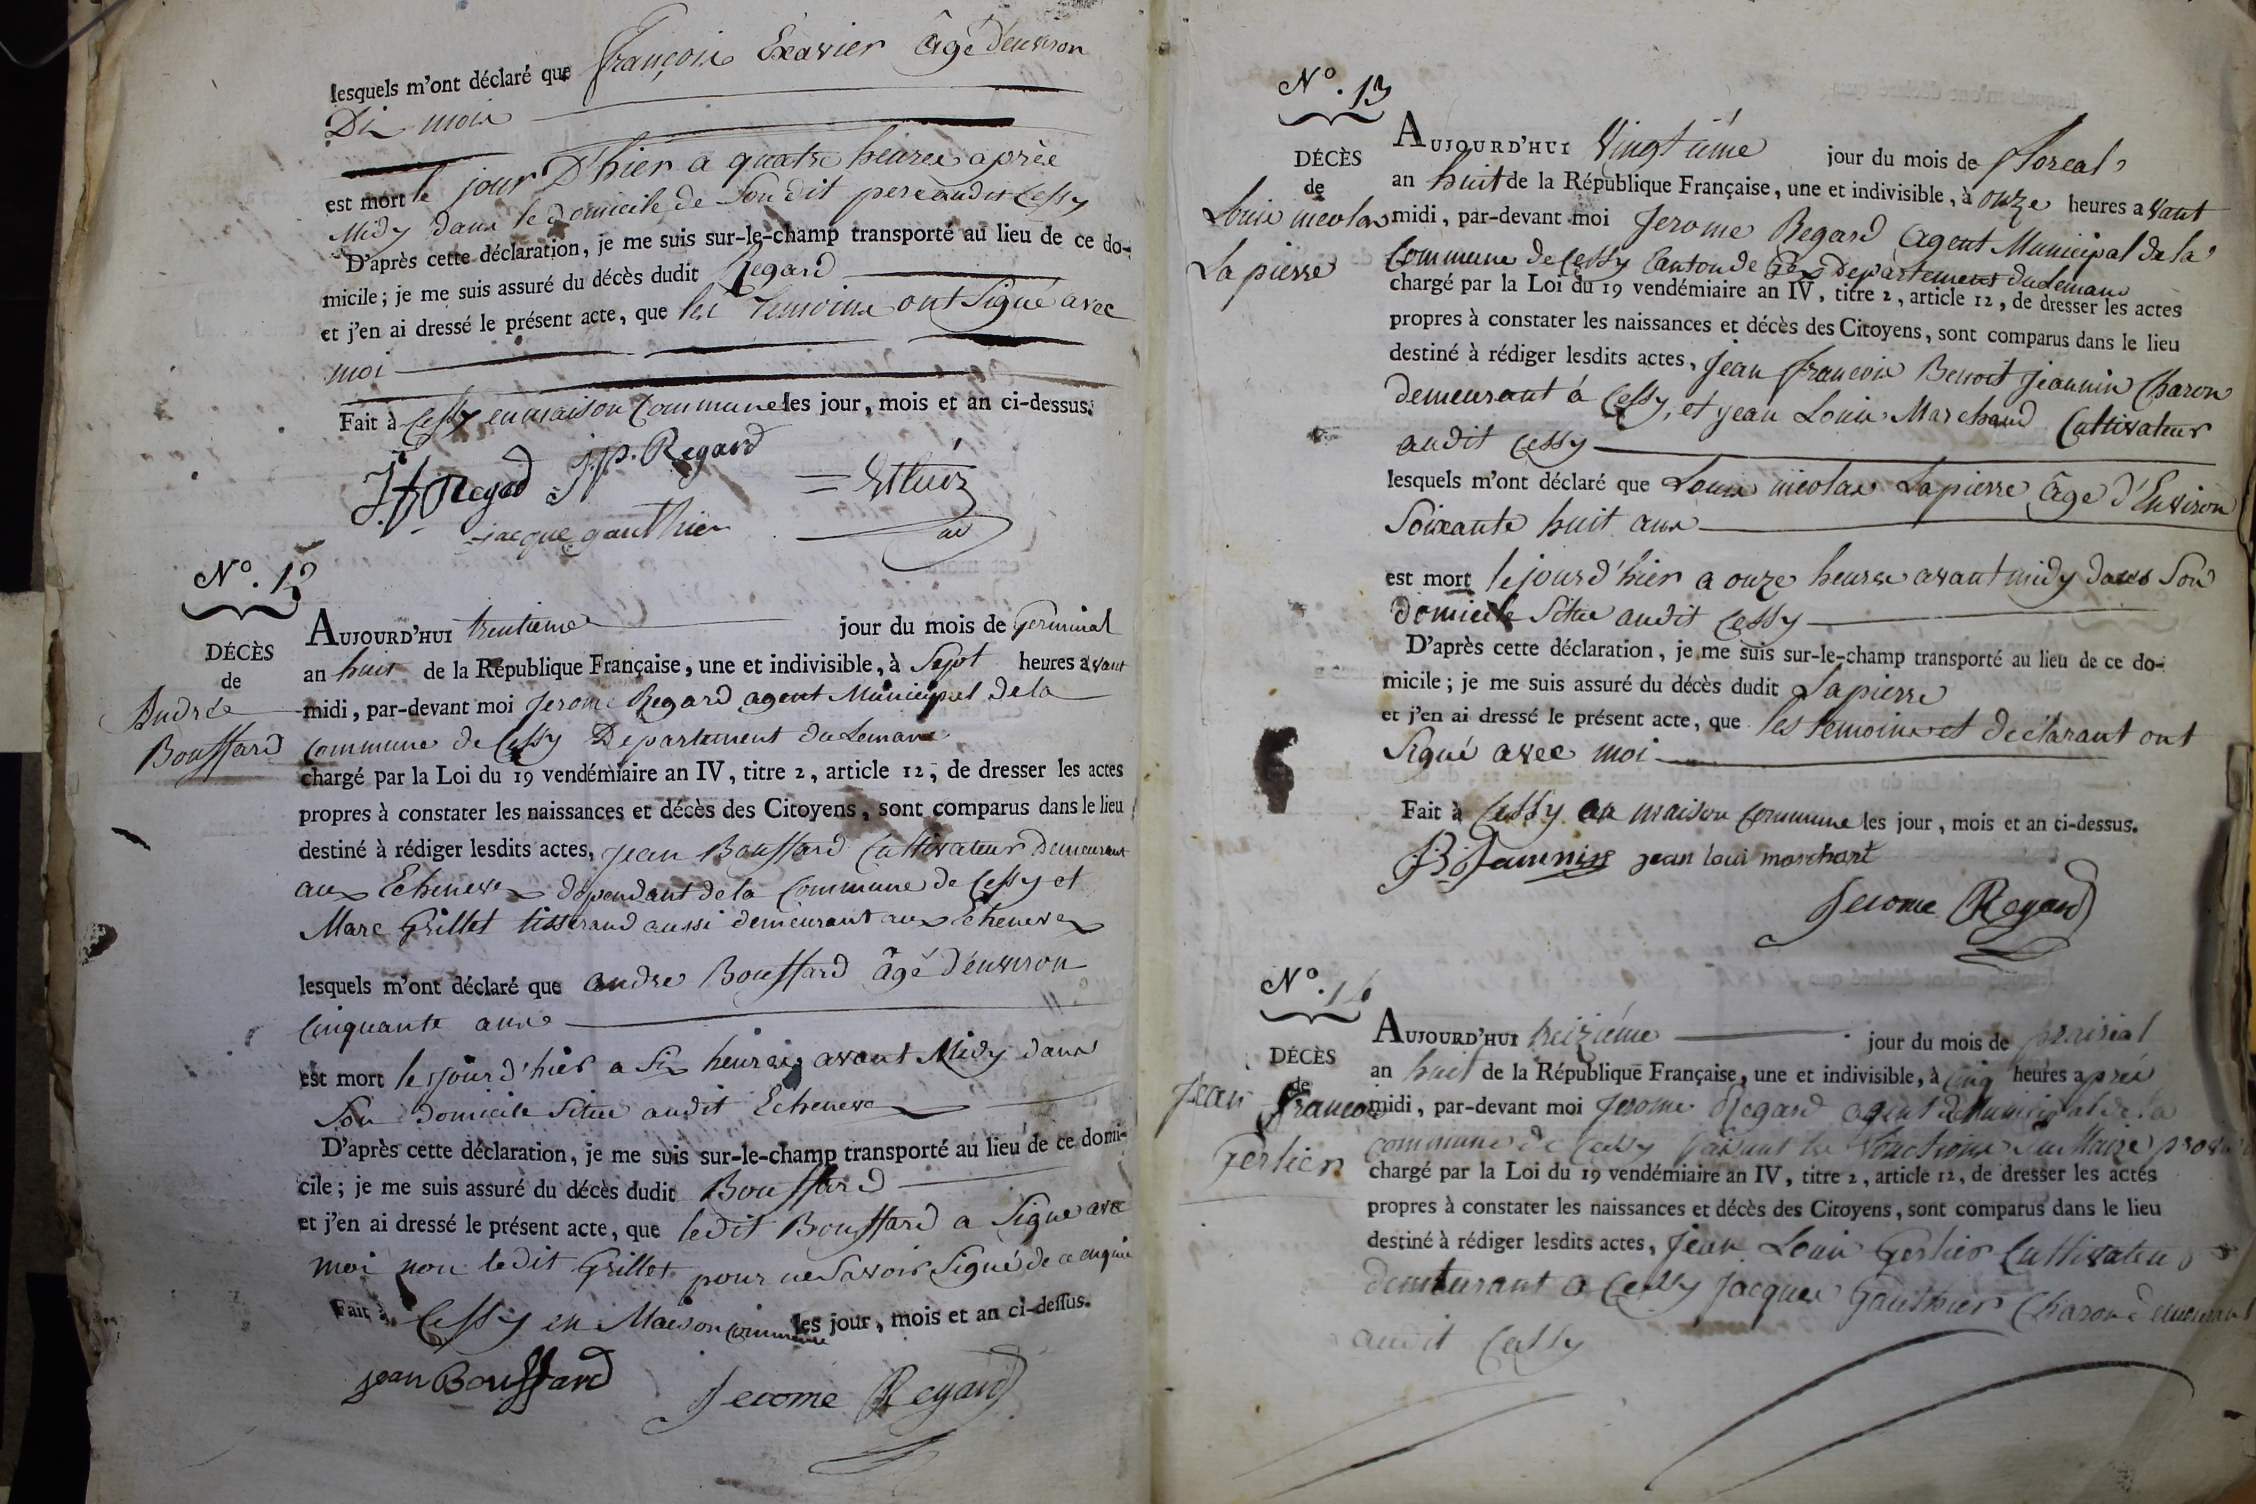 lesquels m'ont déclaré que françois Exavier âgé d'environ
Dix mois
est mort le jour D'hier a quatre heures après
Midy dans le domicile de Son dit pere audit Cessy
D'après cette déclaration, je me suis sur-le-champ transporté au lieu de ce do-
micile; je me suis assuré du décès dudit Regard
et j'en ai dressé le présent acte, que les temoins ont Signé avec
moi
Fait à Cessy en maison Commune les jour, mois et an ci-dessus.
Regard J. p. Regard
jacque gauthier
N°. 12
DÉCÈS
de
André
Bouffard
AUJOURD'HUI trentieme jour du mois de Germinal
an huit de la République Française, une et indivisible, à Sept heures avant
midi, par-devant moi Jerome Regard agent Municipal de la
Commune de Cessy Departement du Leman
chargé par la Loi du 19 vendémiaire an IV, titre 2, article 12, de dresser les actes
propres à constater les naissances et décès des Citoyens, sont comparus dans le lieu
destiné à rédiger lesdits actes, jean Bouffard Cultivateur demeurant
aux Echenevex dépendant de la Commune de Cessy et
Marc Grillet tisserand aussi demeurant aux Echenevex
lesquels m'ont déclaré que andre Bouffard âgé d'environ
Cinquante ans
est mort le jour d'hier a Six heures avant Midy dans
Son domicile Situé audit Echenevex
D'après cette déclaration, je me suis sur-le-champ transporté au lieu de ce domi-
cile; je me suis assuré du décès dudit Bouffard
et j'en ai dressé le présent acte, que ledit Bouffard a Signé avec
moi non ledit Grillet pour ne Savoir Signé de ce enquis
Fait à Cessy en Maison commune les jour, mois et an ci-dessus.
jean Bouffard Jerome Regard
N°. 13
DÉCÈS
de
Louis nicolas
Lapierre
AUJOURD'HUI Vingtiéme jour du mois de floreal
an huit de la République Française, une et indivisible, à onze heures avant
midi, par-devant moi Jerome Regard agent Municipal de la
Commune de Cessy Canton de Gex Departement du Leman
chargé par la Loi du 19 vendémiaire an IV, titre 2, article 12, de dresser les actes
propres à constater les naissances et décès des Citoyens, sont comparus dans le lieu
destiné à rédiger lesdits actes, Jean françois Benoit Jeannin Charon
demeurant à Cessy, et jean Louis Marchand Cultivateur
audit Cessy
lesquels m'ont déclaré que Louis nicolas Lapierre âgé d'Environ
Soixante huit ans
est mort le jour d'hier a onze heures avant midy dans Son
domicile Situé audit Cessy
D'après cette déclaration, je me suis sur-le-champ transporté au lieu de ce do-
micile; je me suis assuré du décès dudit Lapierre
et j'en ai dressé le présent acte, que les temoins et déclarant ont
Signé avec moi
Fait à Cessy en maison commune les jour, mois et an ci-dessus.
Jeannin jean loui marchant
Jerome Regard
N°. 14
DÉCÈS
de
Jean francois
Gerlier
AUJOURD'HUI treiziéme jour du mois de prairial
an huit de la République Française, une et indivisible, à cinq heures aprés
midi, par-devant moi Jerome Regard agent Municipal de la
commune de Cessy faisant les fonctions du Maire
chargé par la Loi du 19 vendémiaire an IV, titre 2, article 12, de dresser les actes
propres à constater les naissances et décès des Citoyens, sont comparus dans le lieu
destiné à rédiger lesdits actes, Jean Louis Gerlier Cultivateur
demeurant a Cessy Jacques Gauthier Charon demeurant
audit Cessy